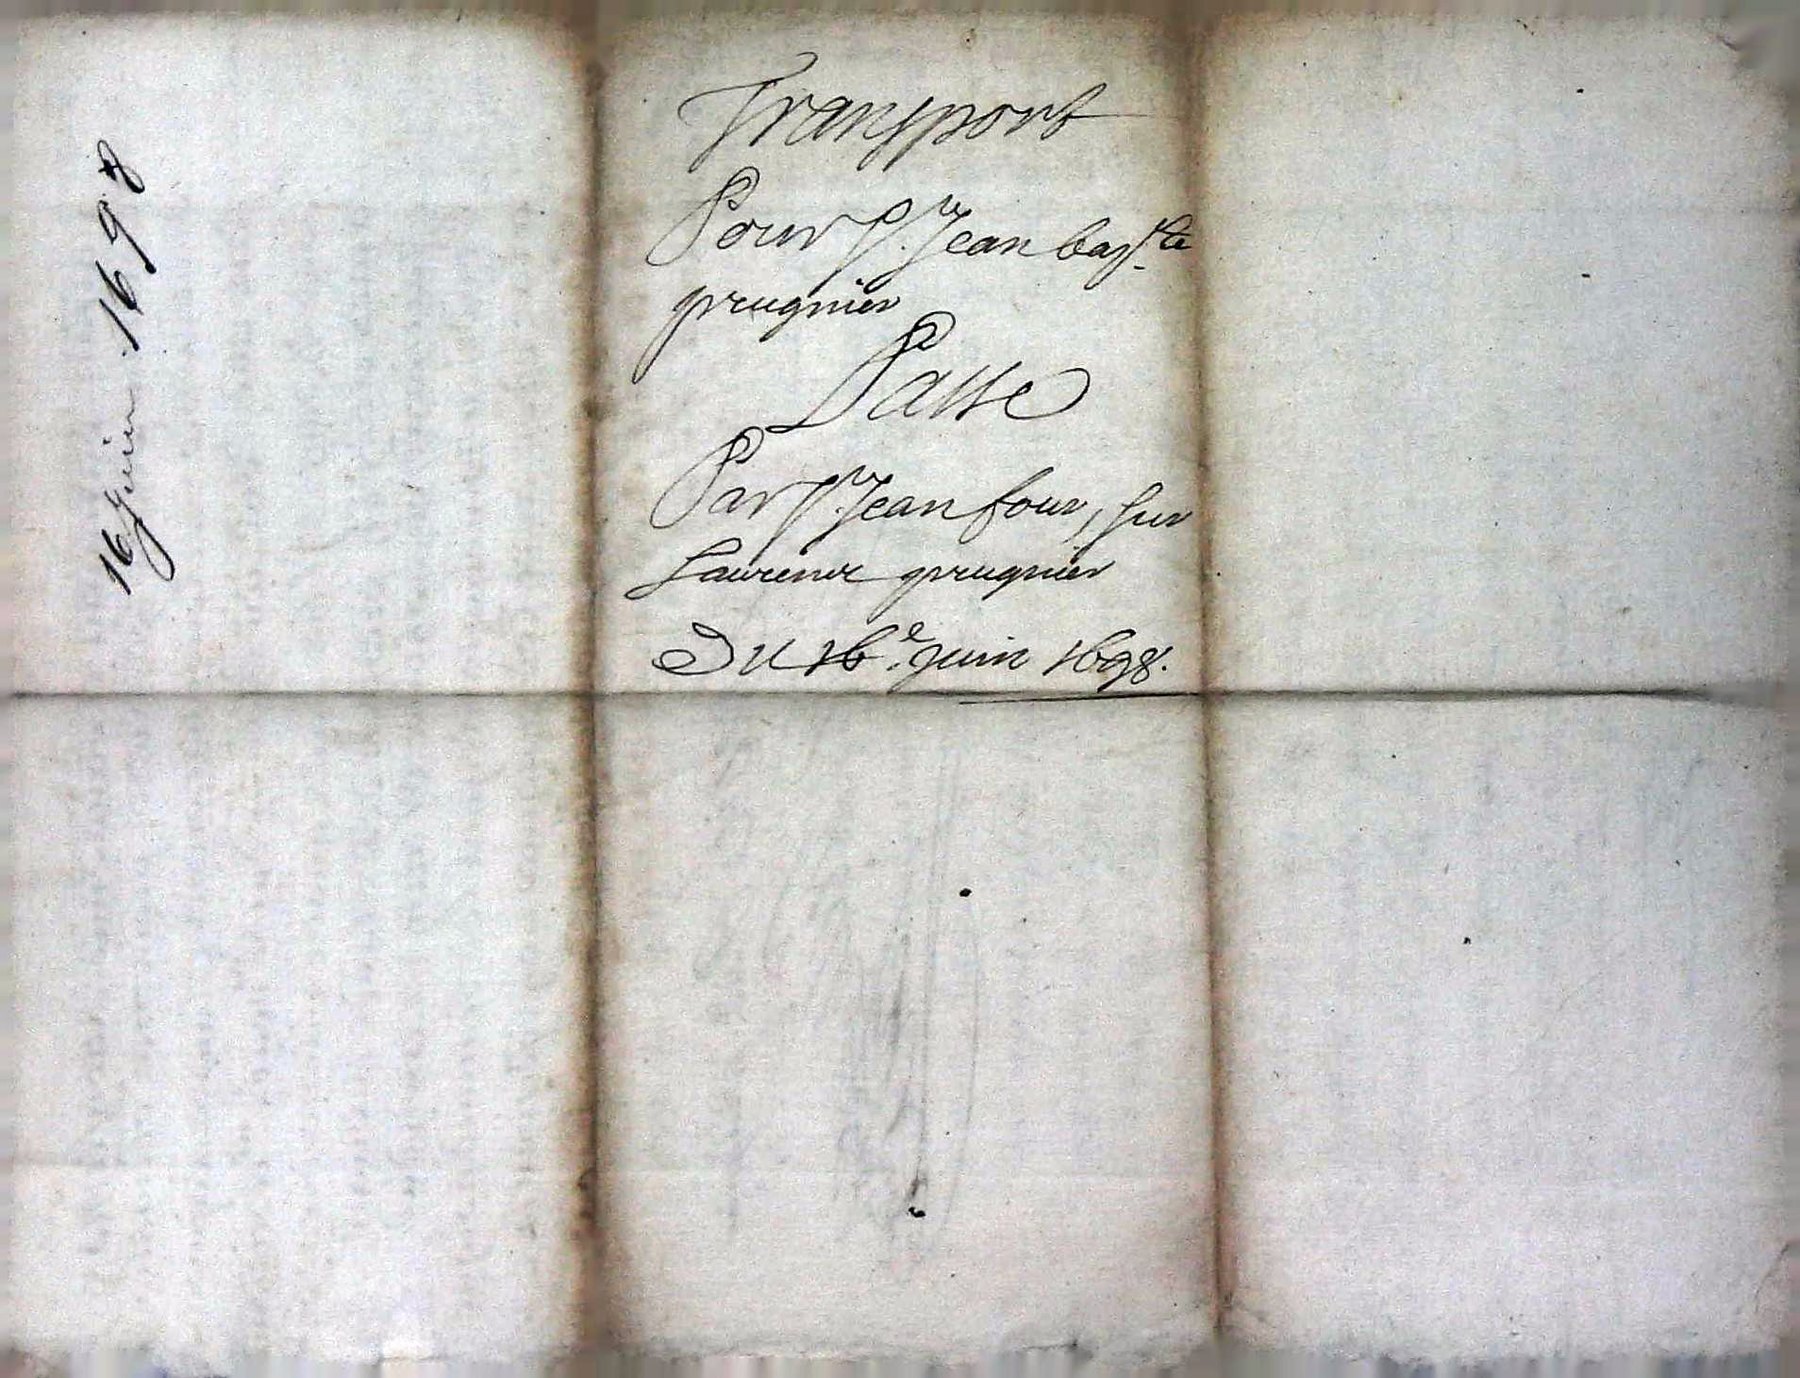 16 Juin 1698
Transport
Pour S.r Jean bap.te
prugnier
Passe
Par S.r Jean four, sur
Laurence prugnier
Du 16.e juin 1698.